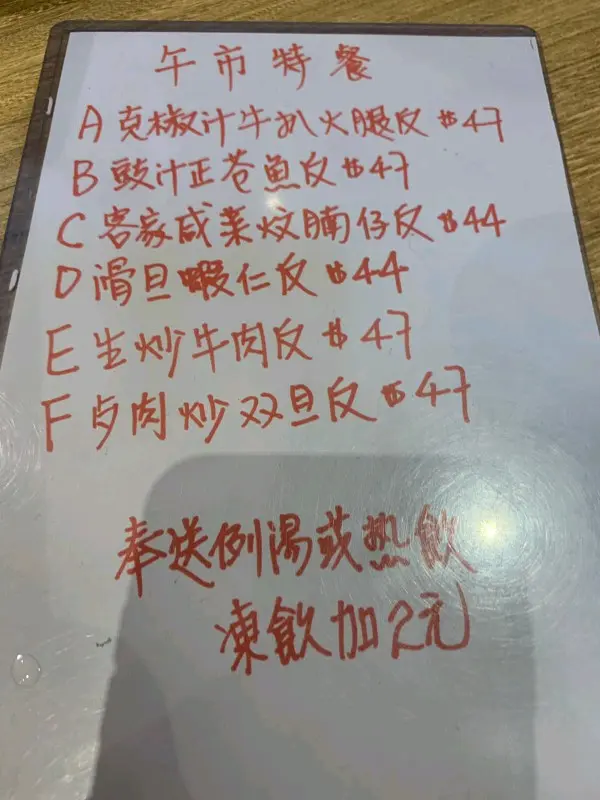 午市特餐
A 克椒汁牛扒火腿反 $47
B 豉汁正苍魚反 $47
C 客家咸菜炆腩仔反 $44
D 滑旦蝦仁反 $44
E 生炒牛肉反 $47
F 卢肉炒双旦反 $47
奉送例湯或热飲
凍飲加2元